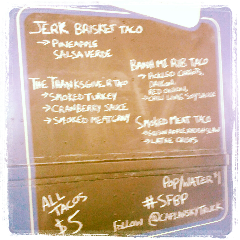 JERK BRISKET TACO
→ PINEAPPLE
SALSA VERDE
THE THANKSGIVER TACO
→ SMOKED TURKEY
→ CRANBERRY SAUCE
→ SMOKED MEAT GRAVY
BANH MI RIB TACO
→ PICKLED CARROTS,
DAIKON,
RED ONION,
CHILI LIME SOY SAUCE
SMOKED MEAT TACO
→ LATKE CRISPS
ALL
TACOS
$5
POP/WATER $1
#SFBP
FOLLOW @CAPLANSKYTRUCK